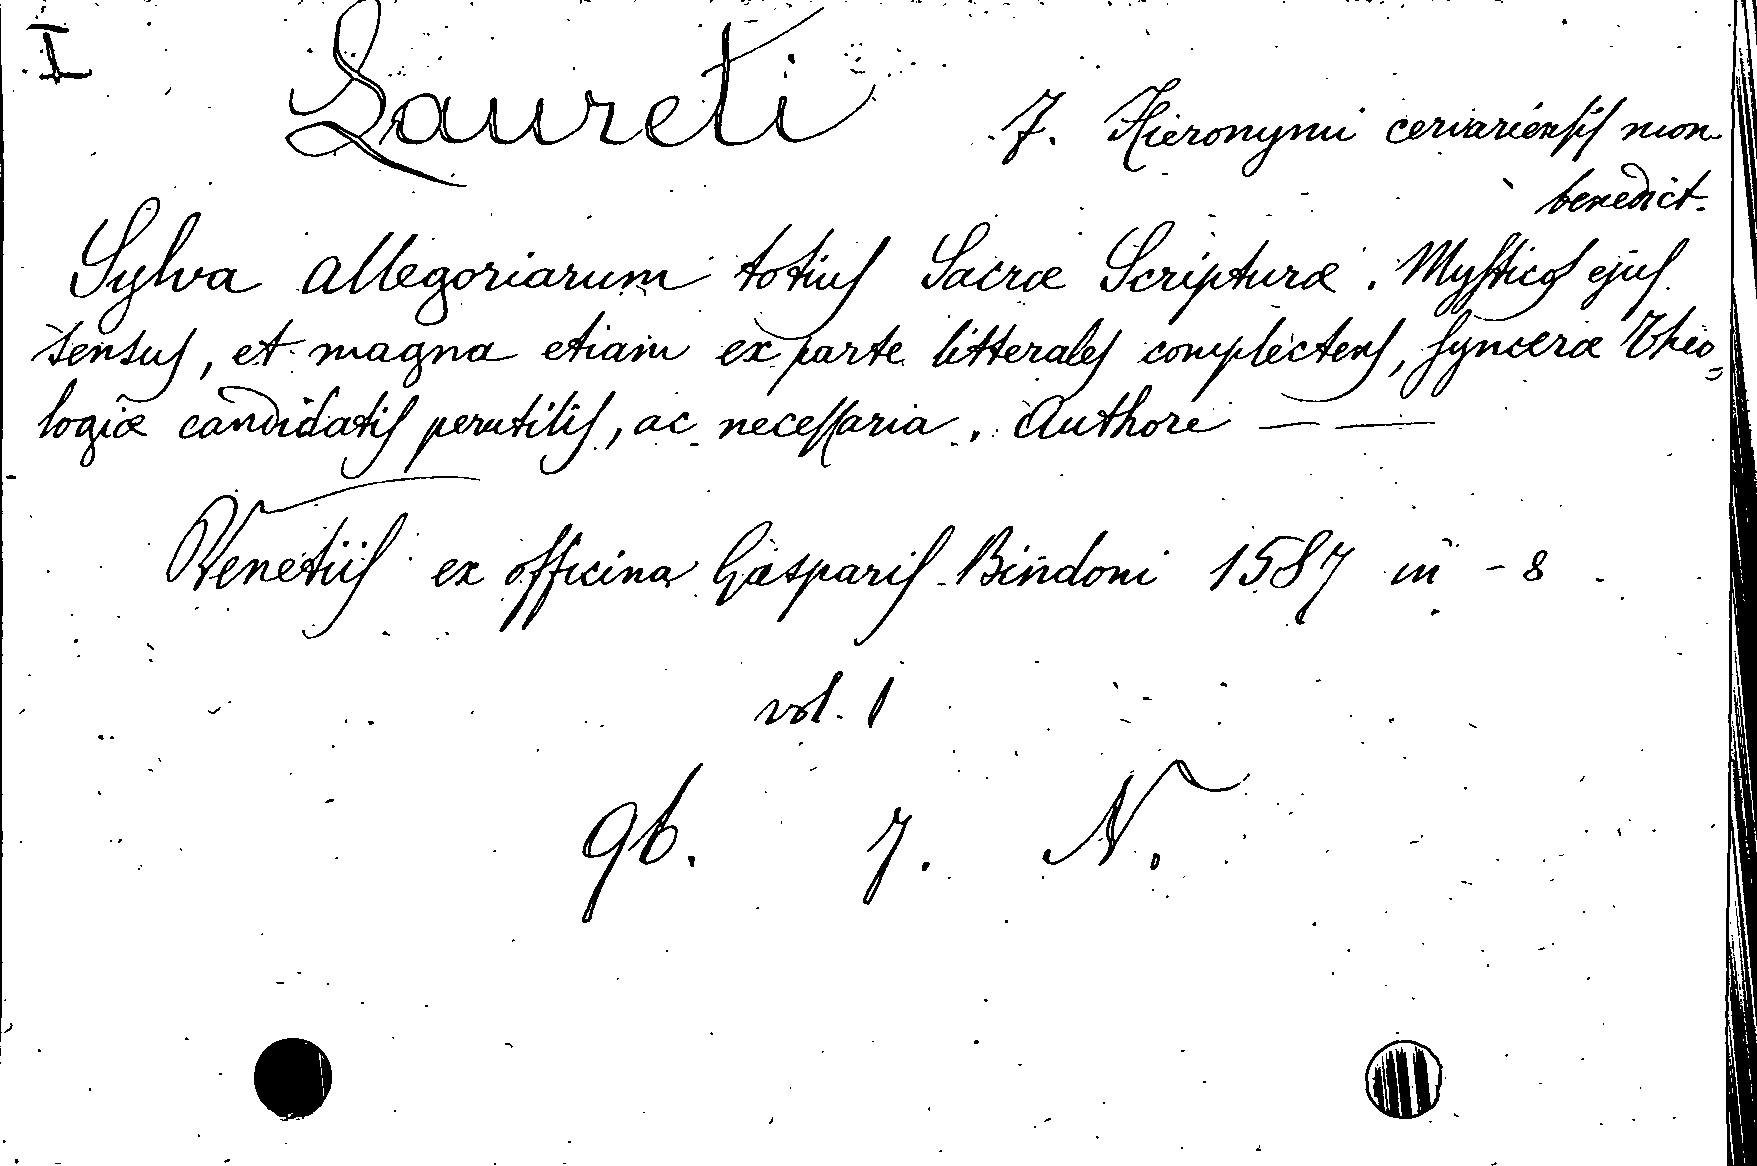 I
Laureti F. Hieronymi cervariensis mon
benedict.
Sylva allegoriarum totius Sacræ Scripturæ. Mysticos ejus
sensus, et magna etiam ex parte litterales complectens, synceræ Theo„
logiæ candidatis perutilis, ac necessaria. Authore — —
Venetiis ex officina Gasparis Bindoni 1587 in - 8
vol. 1
96. 7. N.